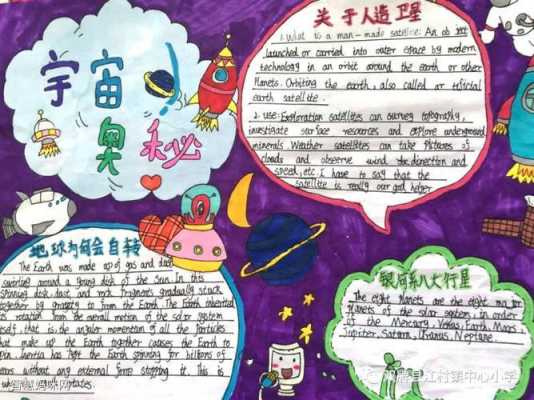 宇宙
奥秘
关于人造卫星
1. What is a man-made satellite: An ob ect
launched or carried into outer space by modern
technology in an orbit around the earth or other
Planets. Orbiting the earth, also called ar tificial
earth satellite.
2. use: Exploration satellites can survey topography,
investigate surface resources and explore underground
minerals Weather satellites can take Pictures of
clouds and observe wind direction and
speed, etc. I have to say that the
satellite is really our god helper
地球为何会自转
The Earth was made up of gas and dust
swirling around a young disk of the Sun. In this
spinning disk, dust and rock fragments gradually stuck
together by gravity to from the Earth. The Earth inherited
its rotation from the overall motion of the solar system
itself, that is, the angular momentum of all the Particles
that make up the Earth together causes the Earth to
spin. Inertia has kept the Earth spinning for billions of
years without any external force stopping it. This is
why rotates.
银河系八大行星
The eight Planets are the eight major
Planets of the solar system, in order
of the Mercury, Venus, Earth, Mars
Jupiter, Saturn, Uranus, Neptune.
智慧妈咪网
县江村镇中心小学